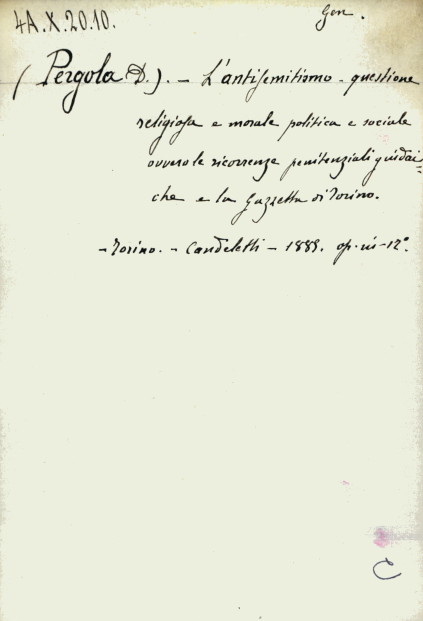 4A.X.20.10.
Gen.
(Pergola D.). - L'antisemitismo - questione
religiosa e morale politica e sociale
ovvero le ricorrenze penitenziali giudai=
che e la Gazzetta di Torino.
- Torino. - Candeletti - 1885. op. in-12°.
C